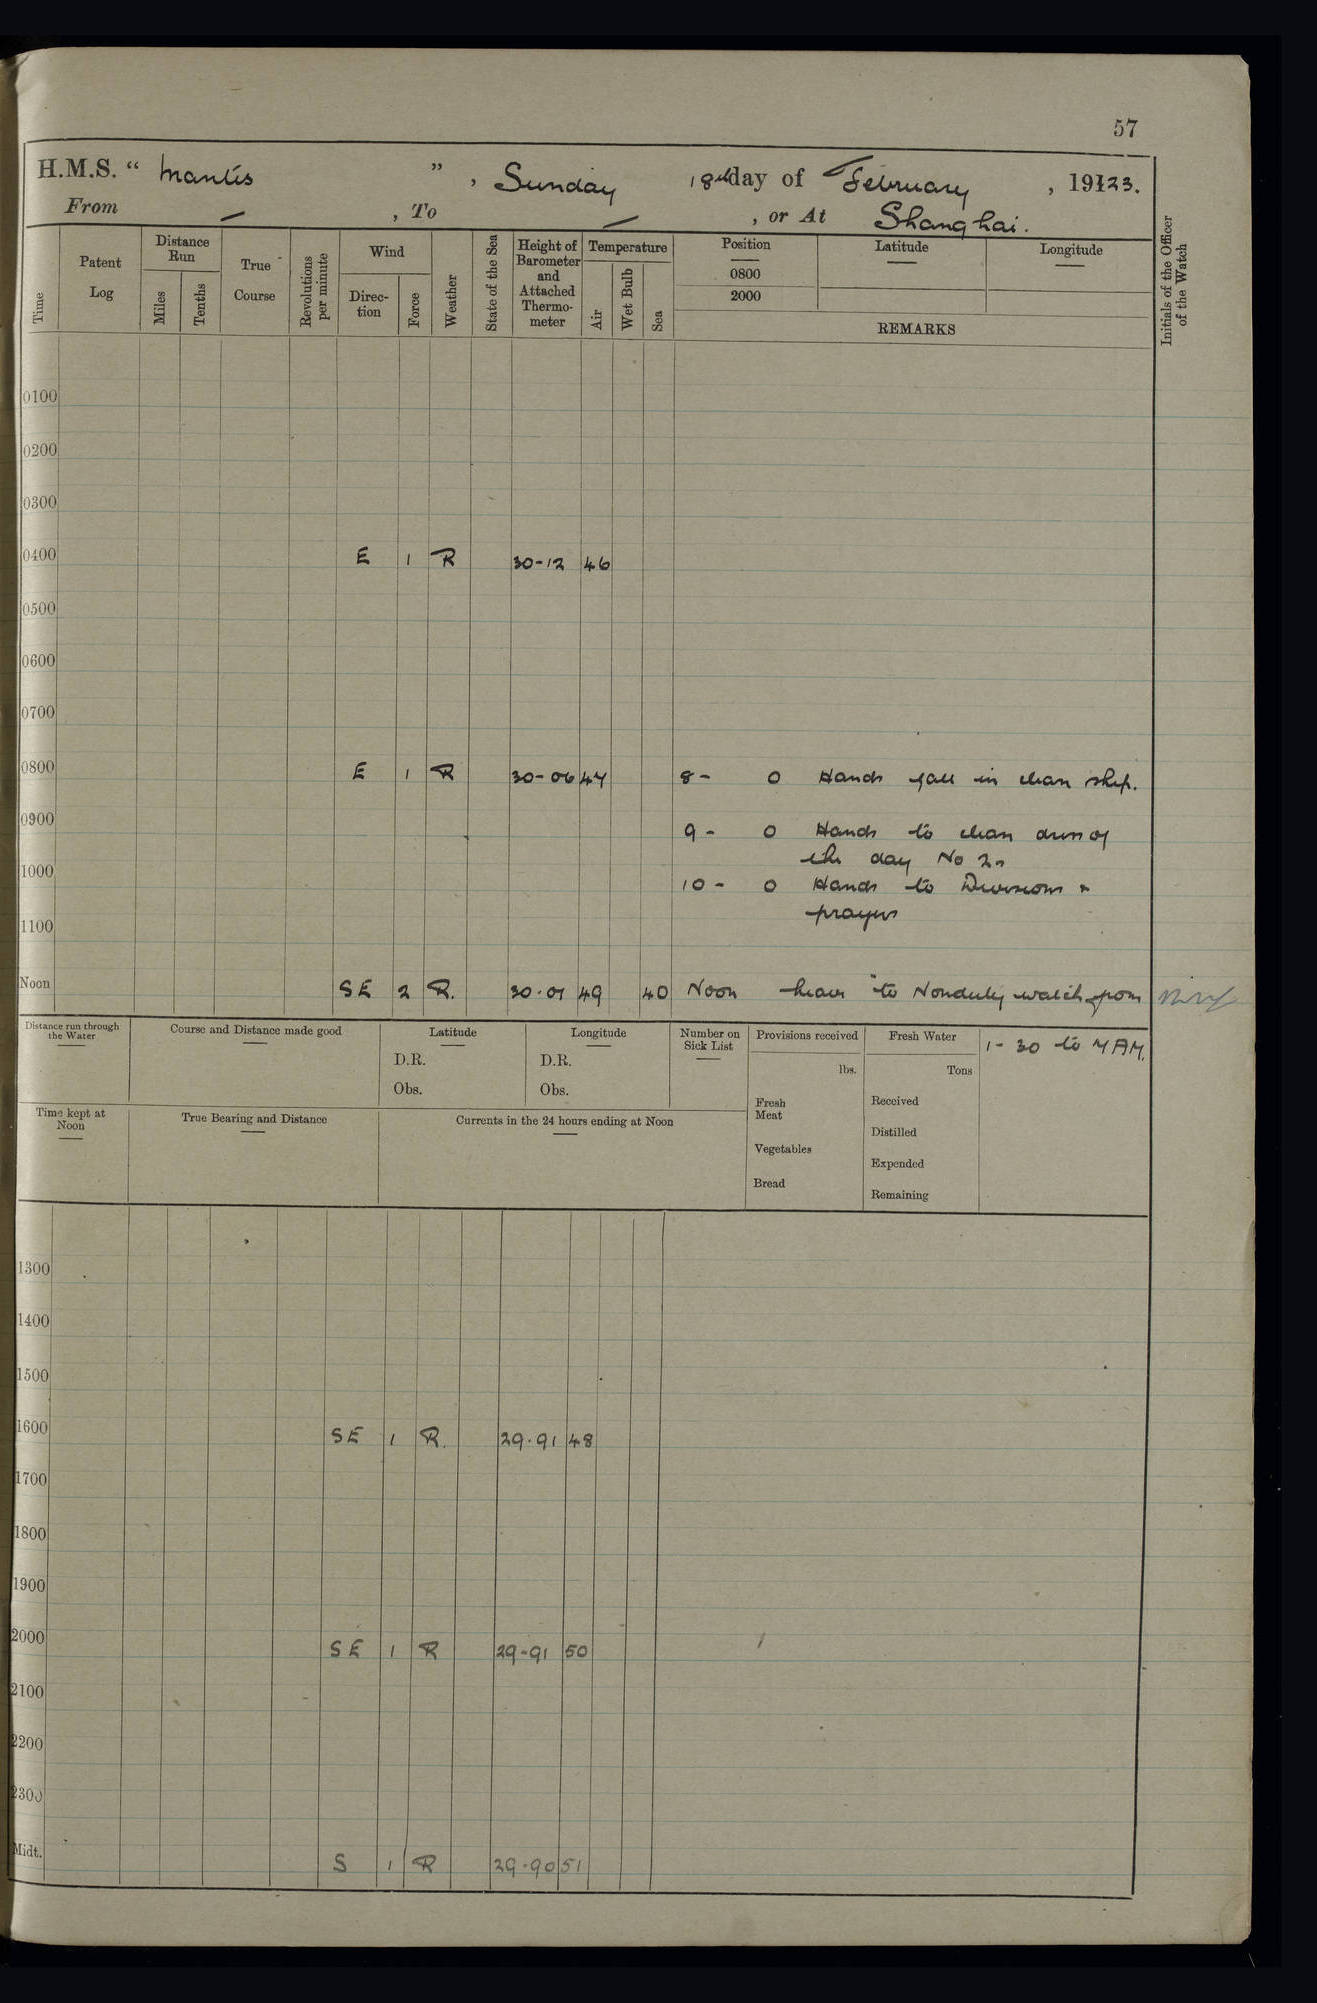 57
H.M.S. “ Mantis ” , Sunday 18th day of February , 1923.
From — , To — , or At Shanghai.
Time
Patent Log
Distance Run
Miles
Tenths
True Course
Revolutions per minute
Wind
Direc-tion
Force
Weather
State of the Sea
Height of Barometer and Attached Thermo-meter
Temperature
Air
Wet Bulb
Sea
Position
0800
2000
Latitude
Longitude
REMARKS
Initials of the Officer of the Watch
0100
0200
0300
0400 E 1 R 30-12 46
0500
0600
0700
0800 E 1 R 30-06 47 8- 0 Hands fall in clean ship.
0900 9- 0 Hands to clean dress of
the day No 2s
1000 10- 0 Hands to Divisions &
prayers
1100
Noon SE 2 R. 30.01 49 40 Noon leave to Nonduty watch from
1-30 to 7 AM.
Distance run through the Water
Course and Distance made good
Latitude
D.R.
Obs.
Longitude
D.R.
Obs.
Number on Sick List
Provisions received
lbs.
Fresh Meat
Vegetables
Bread
Fresh Water
Tons
Received
Distilled
Expended
Remaining
Time kept at Noon
True Bearing and Distance
Currents in the 24 hours ending at Noon
1300
1400
1500
1600 SE 1 R. 29.91 48
1700
1800
1900
2000 SE 1 R 29-91 50
2100
2200
2300
Midt. S 1 R 29.90 51